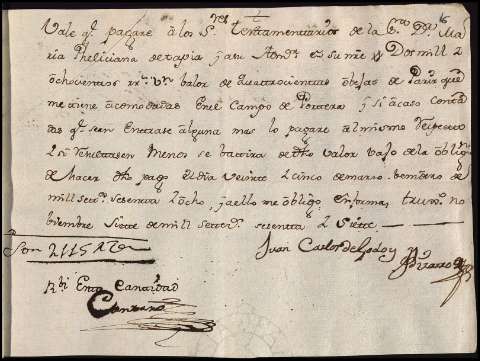 Vale qe. pagare a los Sres. testamentarios de la Sra. Da. Ma
ria Pheliciana de tapia y a su Ronr. es su mie Dos mill y
ochocientos rrs. Vn. balor de quattrocientas obejas de Paris que
me tiene acomodadas En el Campo de y si acaso Conta
das qe. sean Entrase alguna mas lo pagare al mismo respecto
y si tubiessen Menos se baxara de dho valor vajo de la oblign.
de hacer dho pago el dia veinte y cinco de marzo benidero de
mill setts. sesenta y ocho, y a ello me obligo En forma, truxo. no
biembre Siete de mill settts. sesenta y Siete
Juan Carlos de Godoy
Pizarro
Son 2115 Rs
Rbi Esta Cantidad